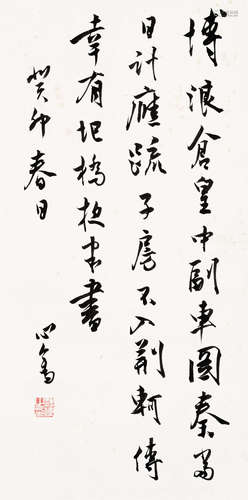 博浪倉皇中副車圖秦當
日計應疏子房不入荊軻傳
幸有圯橋授末書
癸卯春日
心畬